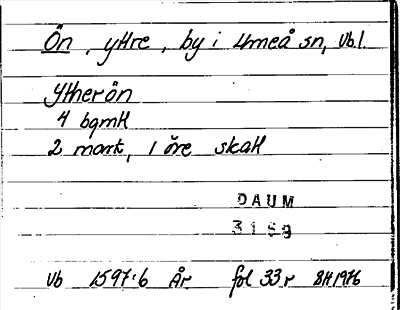 Ön, yttre, by i Umeå sn, Vb.l.
Ytherön
4 bqmtl
2 mark, 1 öre skatt
DAUM
3159
Vb 1597:6 År fol 33 r BH 1976